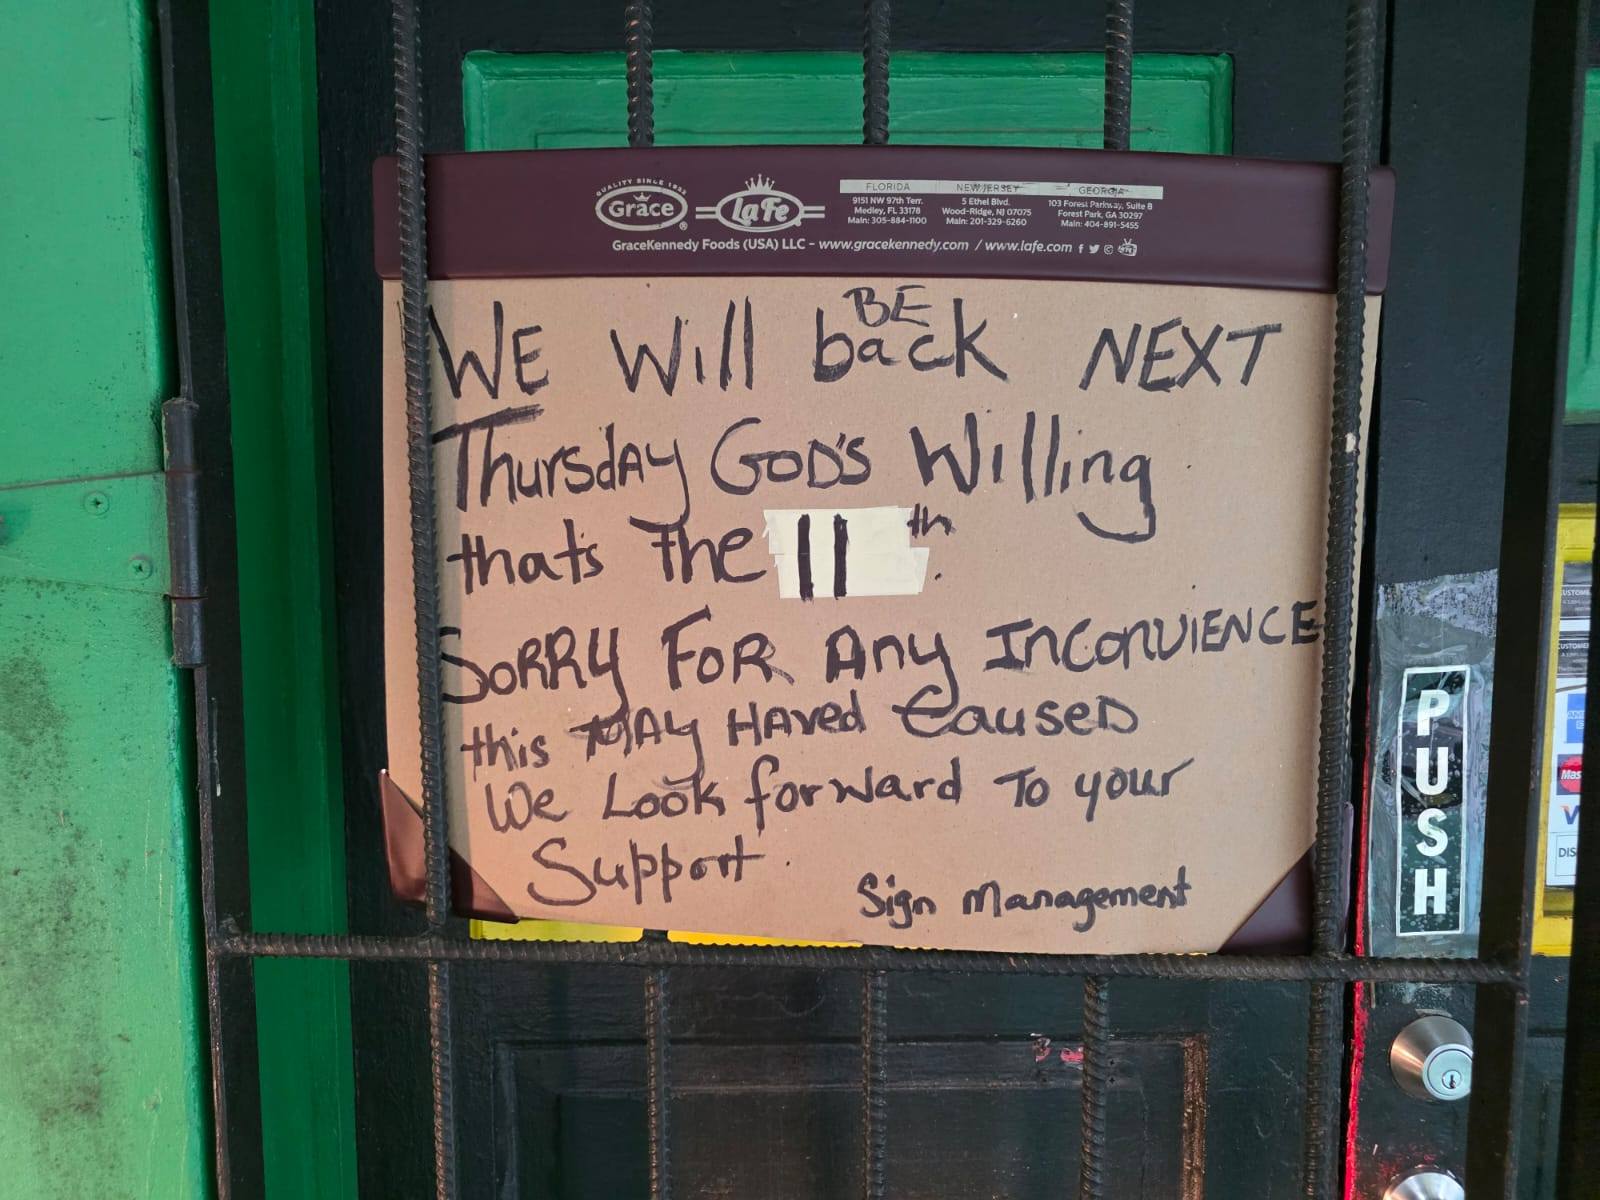 QUALITY SINCE 1922
Grace
LaFe
FLORIDA
9151 NW 97th Terr.
Medley, FL 33178
Main: 305-884-1100
NEW JERSEY
5 Ethel Blvd.
Wood-Ridge, NJ 07075
Main: 201-329-6260
GEORGIA
103 Forest Parkway, Suite B
Forest Park, GA 30297
Main: 404-891-5455
GraceKennedy Foods (USA) LLC - www.gracekennedy.com / www.lafe.com
BE
WE Will back NEXT
Thursday GOD'S Willing
that's The 11th.
SORRY FOR Any INCONVIENCE
this MAY HAVED CAUSED
We Look forward To your
Support.
Sign Management
PUSH